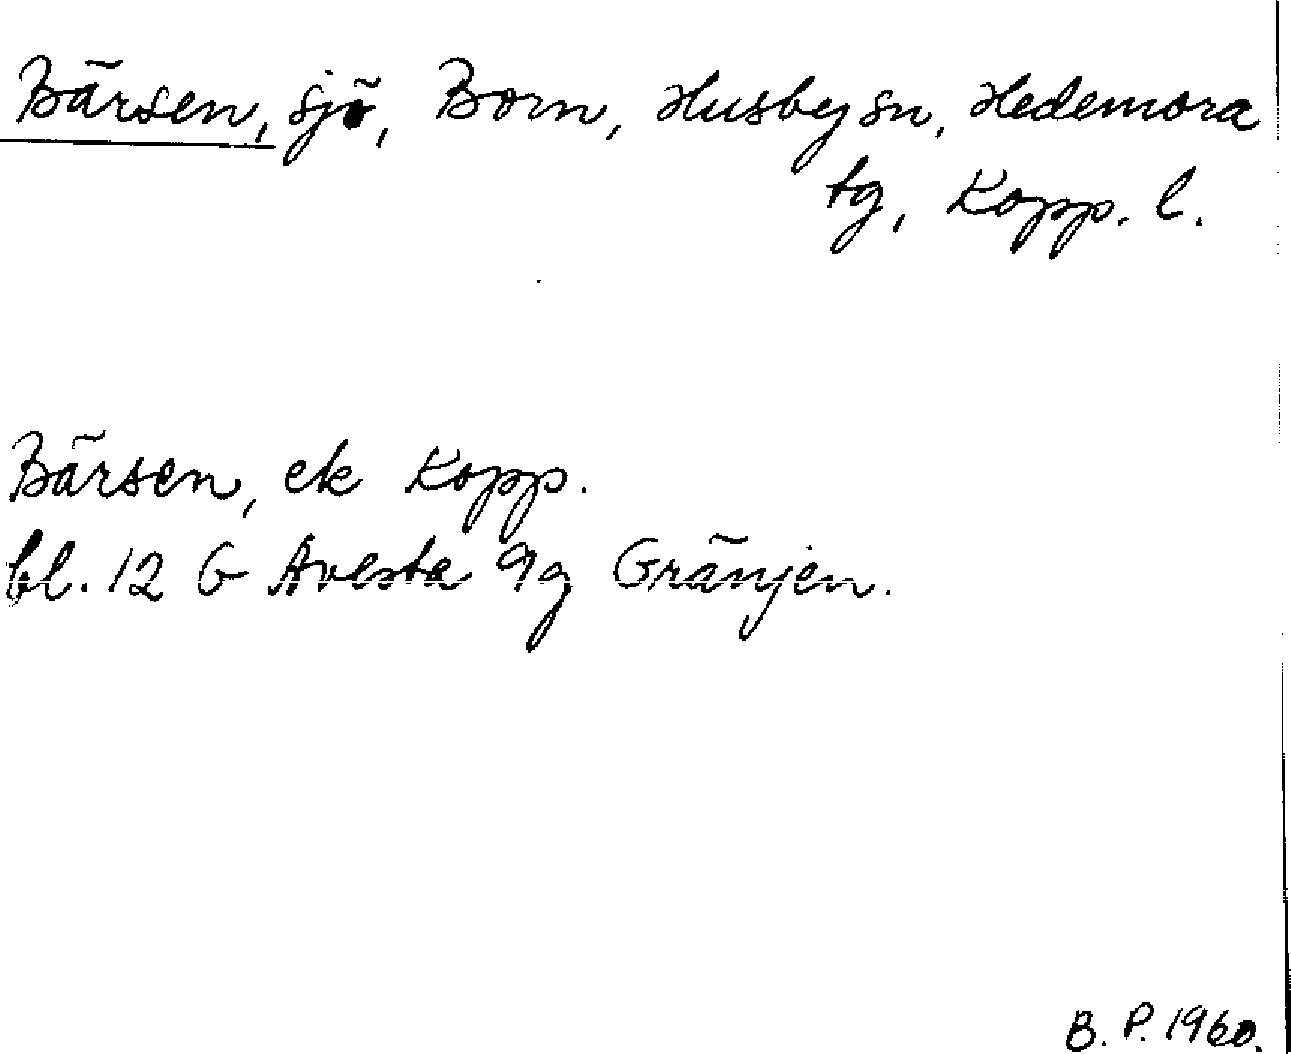 Bärsen, sjö, Born, Husby sn, Hedemora
tg, Kopp. l.
Bärsen, ek Kopp.
bl. 12 G Avesta 9g Gränjen.
B. P. 1960.